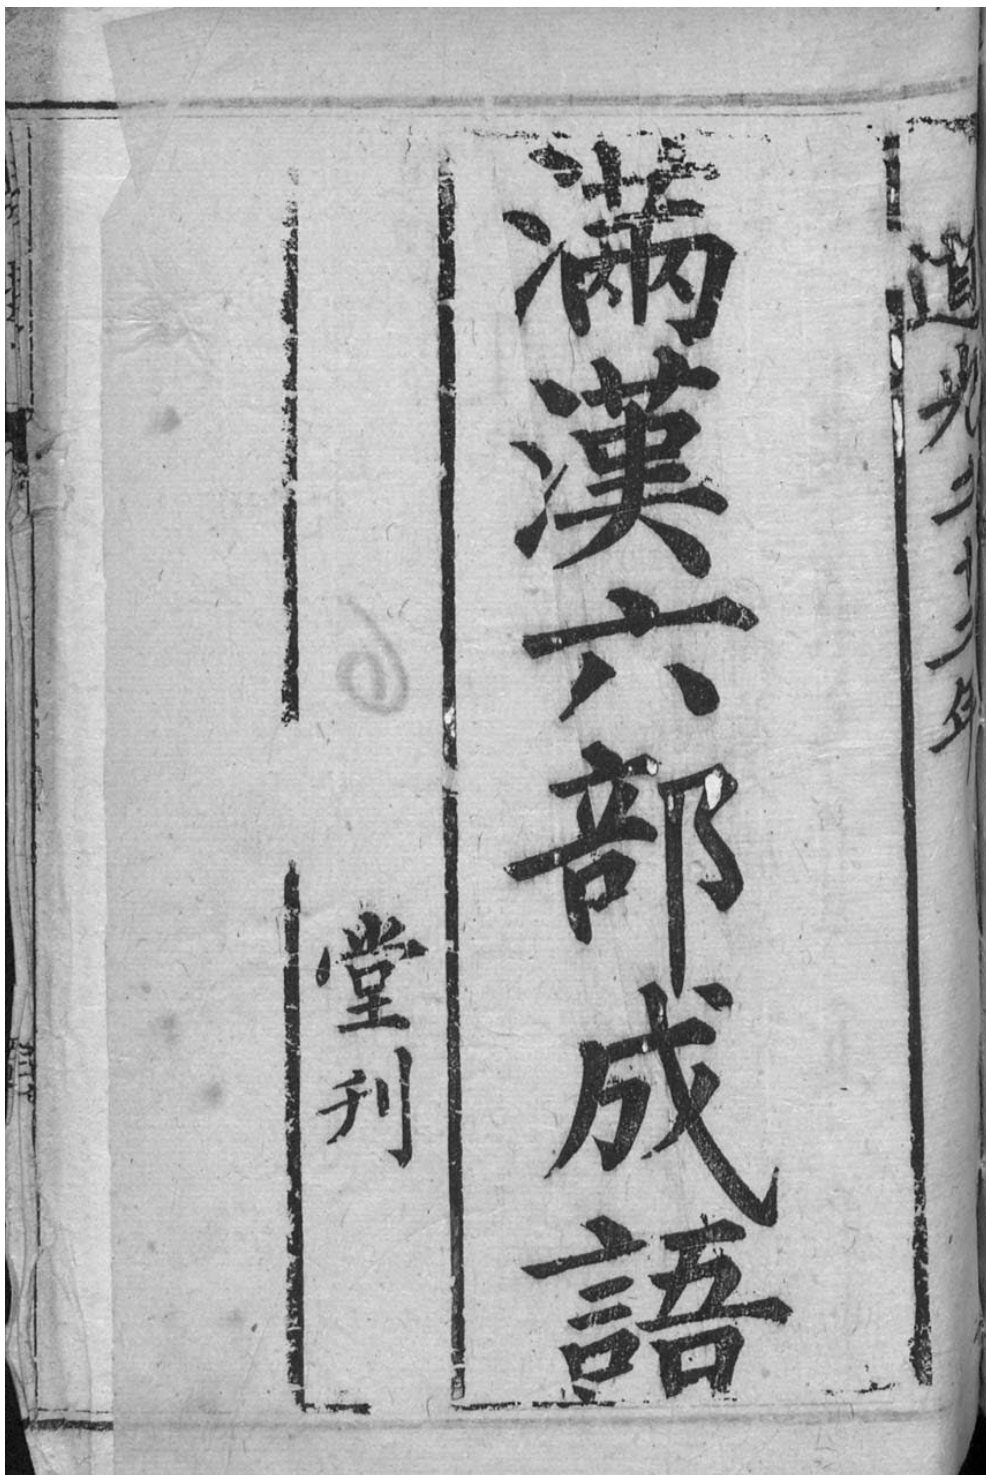 道光二十二年
滿漢六部成語
堂刊
6